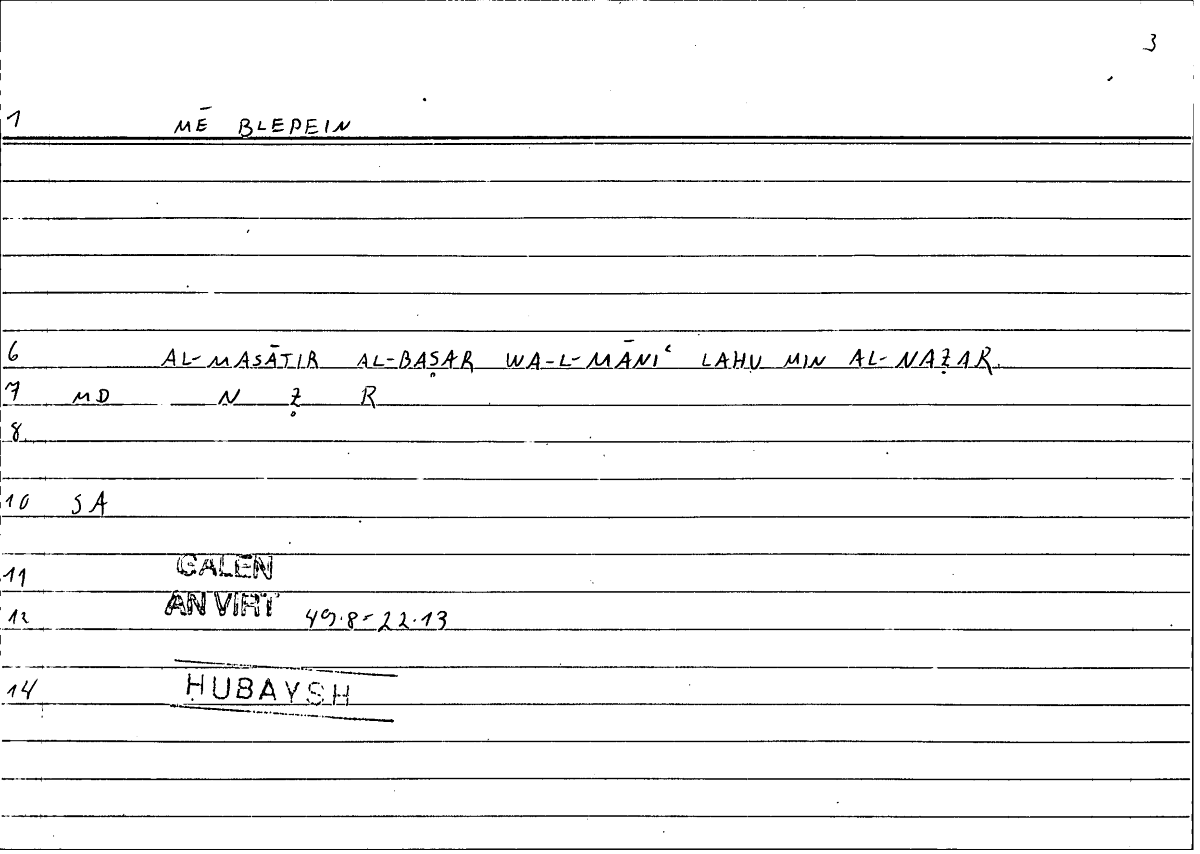 3
1 MĒ BLEPEIN
6 AL-MASĀTIR AL-BAṢAR WA-L-MĀNIʿ LAHU MIN AL-NAẒAR.
7 MD N Ẓ R
8
10 SA
11 GALEN
12 AN VIRT 49.8-22.13
14 ḤUBAYSH